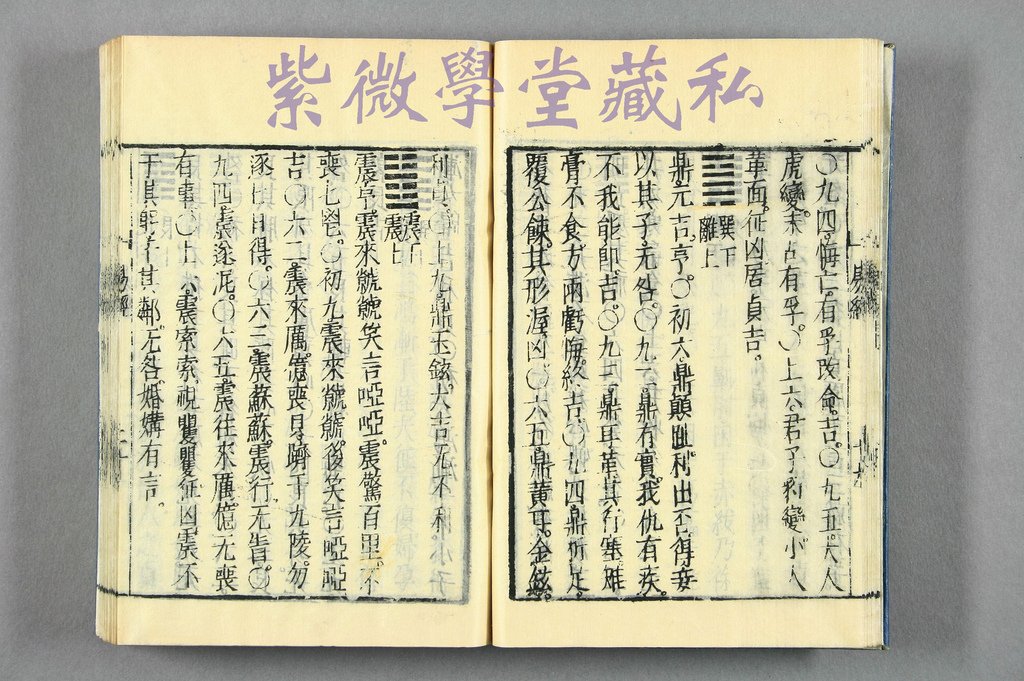 紫微學堂藏私
易經
〇九四。悔亡。有孚改命。吉。〇九五。大人
虎變。未占有孚。〇上六。君子豹變小人
革面。征凶居貞吉。
巽下
離上
鼎元吉。亨。〇初六鼎顛趾利出否得妾
以其子无咎。〇九二鼎有實。我仇有疾。
不我能即。吉。〇九三鼎耳革其行塞雉
膏不食方雨虧悔。終吉。〇九四鼎折足。
覆公餗。其形渥凶〇六五鼎黃耳。金鉉。
利貞。〇上九鼎玉鉉。大吉无不利
震下
震上
震亨震來虩虩笑言啞啞。震驚百里。不
喪匕鬯。〇初九震來虩虩。後笑言啞啞
吉〇六二。震來厲。億喪貝躋于九陵。勿
逐七日得。〇六三。震蘇蘇。震行无眚。〇
九四。震遂泥。〇六五。震往來厲。億无喪
有事。〇上六。震索索。視矍矍。征凶。震不
于其躬于其鄰无咎。婚媾有言。
易經